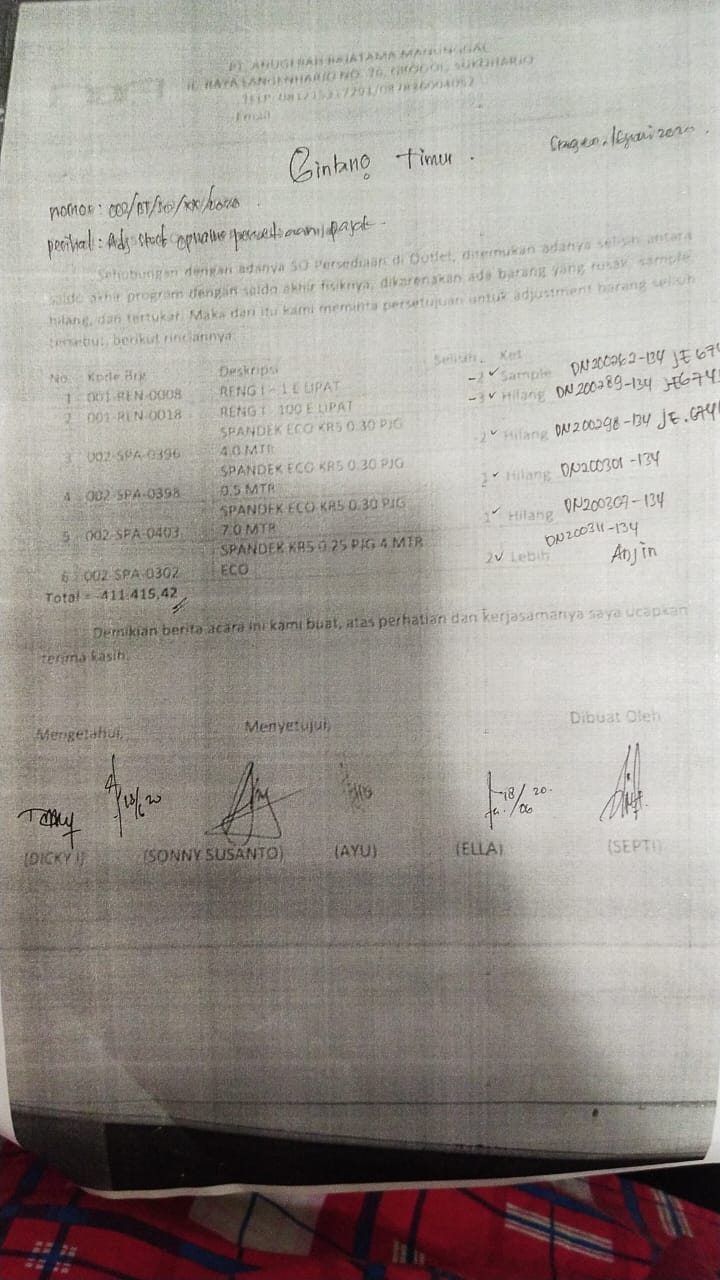 PT. ANUGERAH RAJATAMA MANUNGGAL
JL. RAYA LANGENHARJO NO. 76, GROGOL, SUKOHARJO
TELP.
Email
Bintang Timur.
Sragen,
nomor: 002/BT/SO/XX/2020.
perihal: Adj stock opname
Sehubungan dengan adanya SO Persediaan di Outlet, ditemukan adanya selisih antara
saldo akhir program dengan saldo akhir fisiknya, dikarenakan ada barang yang rusak, sample
hilang, dan tertukar. Maka dari itu kami meminta persetujuan untuk adjustment barang selisih
tersebut, berikut rinciannya:
No. Kode Brg Deskripsi Selisih Ket
1 001-REN-0008 RENG I - 1 E LIPAT -2 ✓ Sample DN200262-134 JE 674
2 001-REN-0018 RENG I 100 E LIPAT -3 ✓ Hilang DN200289-134 JE674
SPANDEK ECO KR5 0.30 PJG
3 002-SPA-0396 4.0 MTR -2 ✓ Hilang DN200298-134 JE.674
SPANDEK ECO KR5 0.30 PJG
4 002-SPA-0398 9.5 MTR 1 ✓ Hilang DN200301-134
SPANDEK ECO KR5 0.30 PJG
5 002-SPA-0403 7.0 MTR 1 ✓ Hilang DN200307-134
SPANDEK KR5 0.25 PJG 4 MTR DN200311-134
6 002-SPA-0302 ECO 2 ✓ Lebih Anjin
Total = -411.415,42
Demikian berita acara ini kami buat, atas perhatian dan kerjasamanya saya ucapkan
terima kasih.
Mengetahui, Menyetujui, Dibuat Oleh
18/6 20 18/06 20.
(DICKY I) (SONNY SUSANTO) (AYU) (ELLA) (SEPTI)